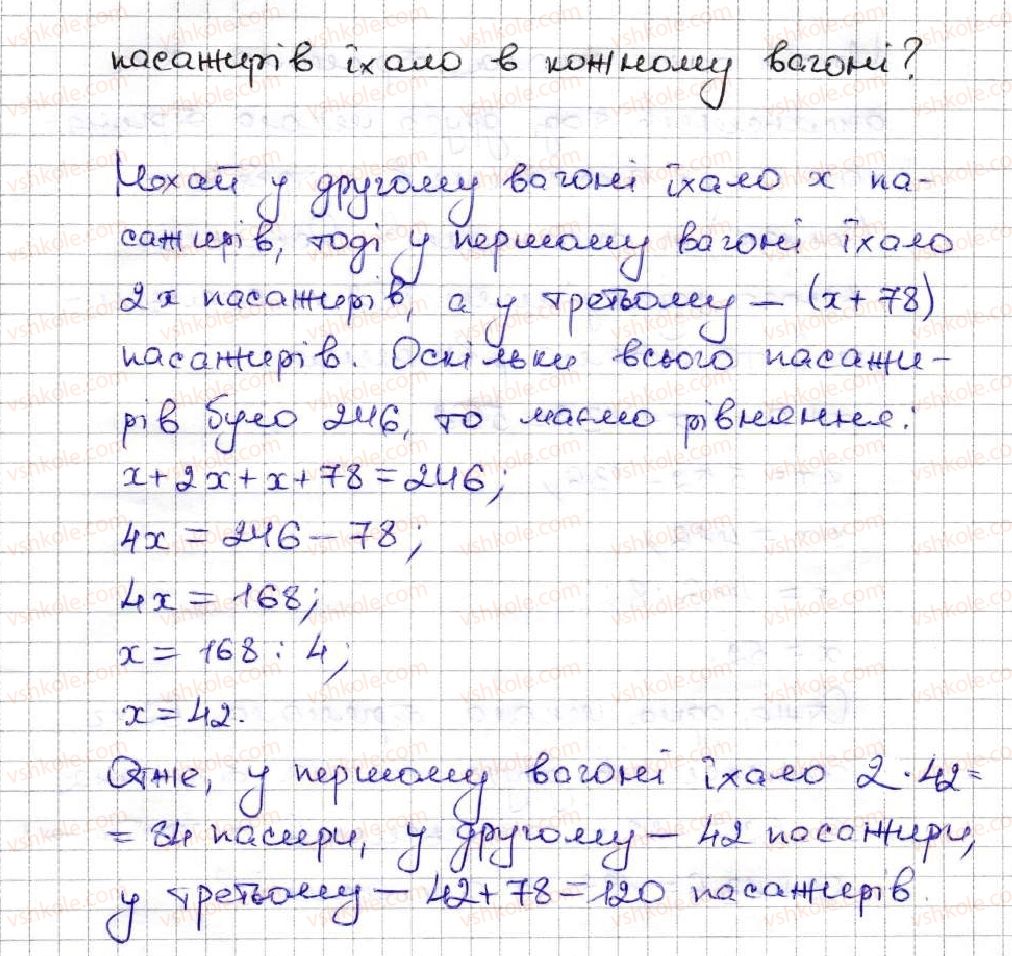 пасажирів їхало в кожному вагоні?
Нехай у другому вагоні їхало x па-
сажирів, тоді у першому вагоні їхало
2x пасажирів, а у третьому — (x + 78)
пасажирів. Оскільки всього пасажи-
рів було 246, то маємо рівняння:
x + 2x + x + 78 = 246;
4x = 246 – 78;
4x = 168;
x = 168 : 4;
x = 42.
Отже, у першому вагоні їхало 2 · 42 =
= 84 пасири, у другому — 42 пасажири,
у третьому — 42 + 78 = 120 пасажирів.